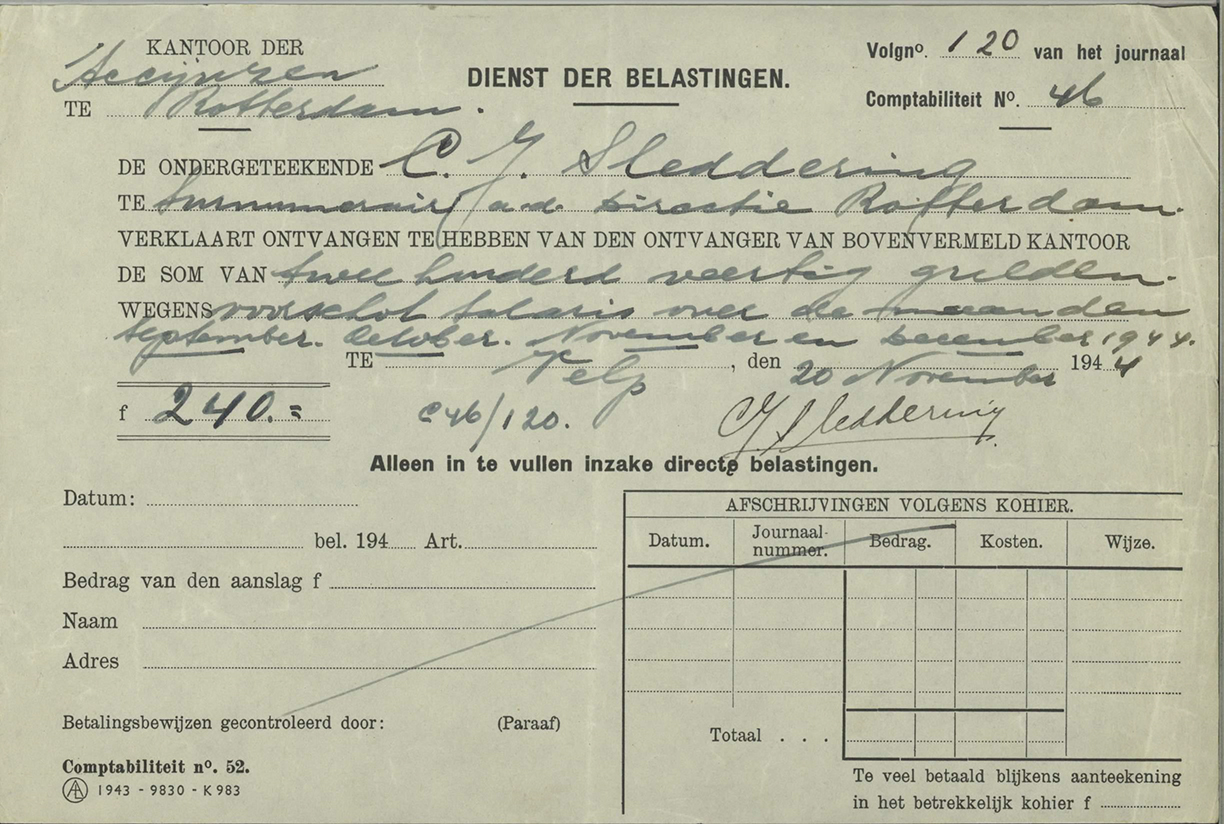 KANTOOR DER
Accijnzen
TE Rotterdam.
DIENST DER BELASTINGEN.
Volgno. 120 van het journaal
Comptabiliteit No. 46
DE ONDERGETEEKENDE C. J. Sleddering
TE surnumerair a.d. Directie Rotterdam.
VERKLAART ONTVANGEN TE HEBBEN VAN DEN ONTVANGER VAN BOVENVERMELD KANTOOR
DE SOM VAN twee honderd veertig gulden.
WEGENS voorschot salaris over de maanden
September. October. November en December 1944.
TE Velp, den 20 November 1944
f 240.=
C46/120.
CJ Sleddering
Alleen in te vullen inzake directe belastingen.
Datum:
bel. 194 Art.
Bedrag van den aanslag f
Naam
Adres
Betalingsbewijzen gecontroleerd door: (Paraaf)
Comptabiliteit no. 52.
AL 1943 - 9830 - K 983
AFSCHRIJVINGEN VOLGENS KOHIER.
Datum. Journaal-nummer. Bedrag. Kosten. Wijze.
Totaal . . .
Te veel betaald blijkens aanteekening
in het betrekkelijk kohier f